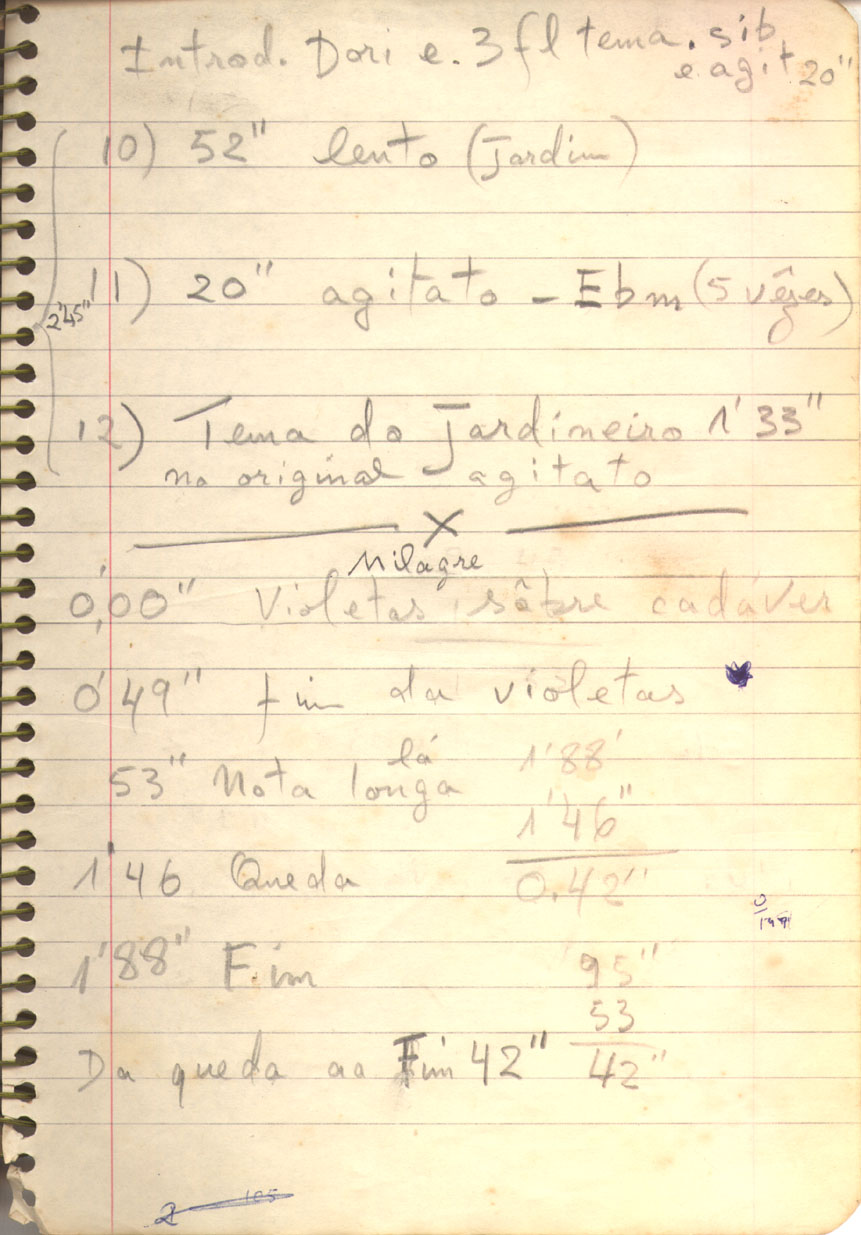 Introd. Dori e. 3 fl tema. sib
e agit 20"
10) 52" lento (Jardim)
11) 20" agitato - Ebm (5 vêzes)
2'45"
12) Tema do Jardineiro 1'33"
no original - agitato
X
Milagre
0,00" Violetas sôbre cadáver
0'49" fim da violetas
lá
53" Nota longa
1'88'
1'46"
0.42"
1'46 Queda
1'88" Fim
95"
53
42"
Da queda ao Fim 42"
2